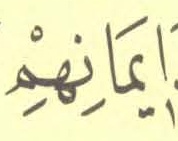 اِيمَانِهِمْ